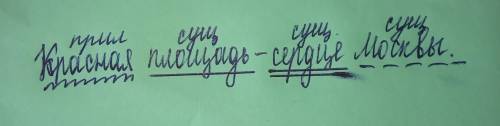 прил сущ сущ. сущ
Красная площадь - сердце Москвы.